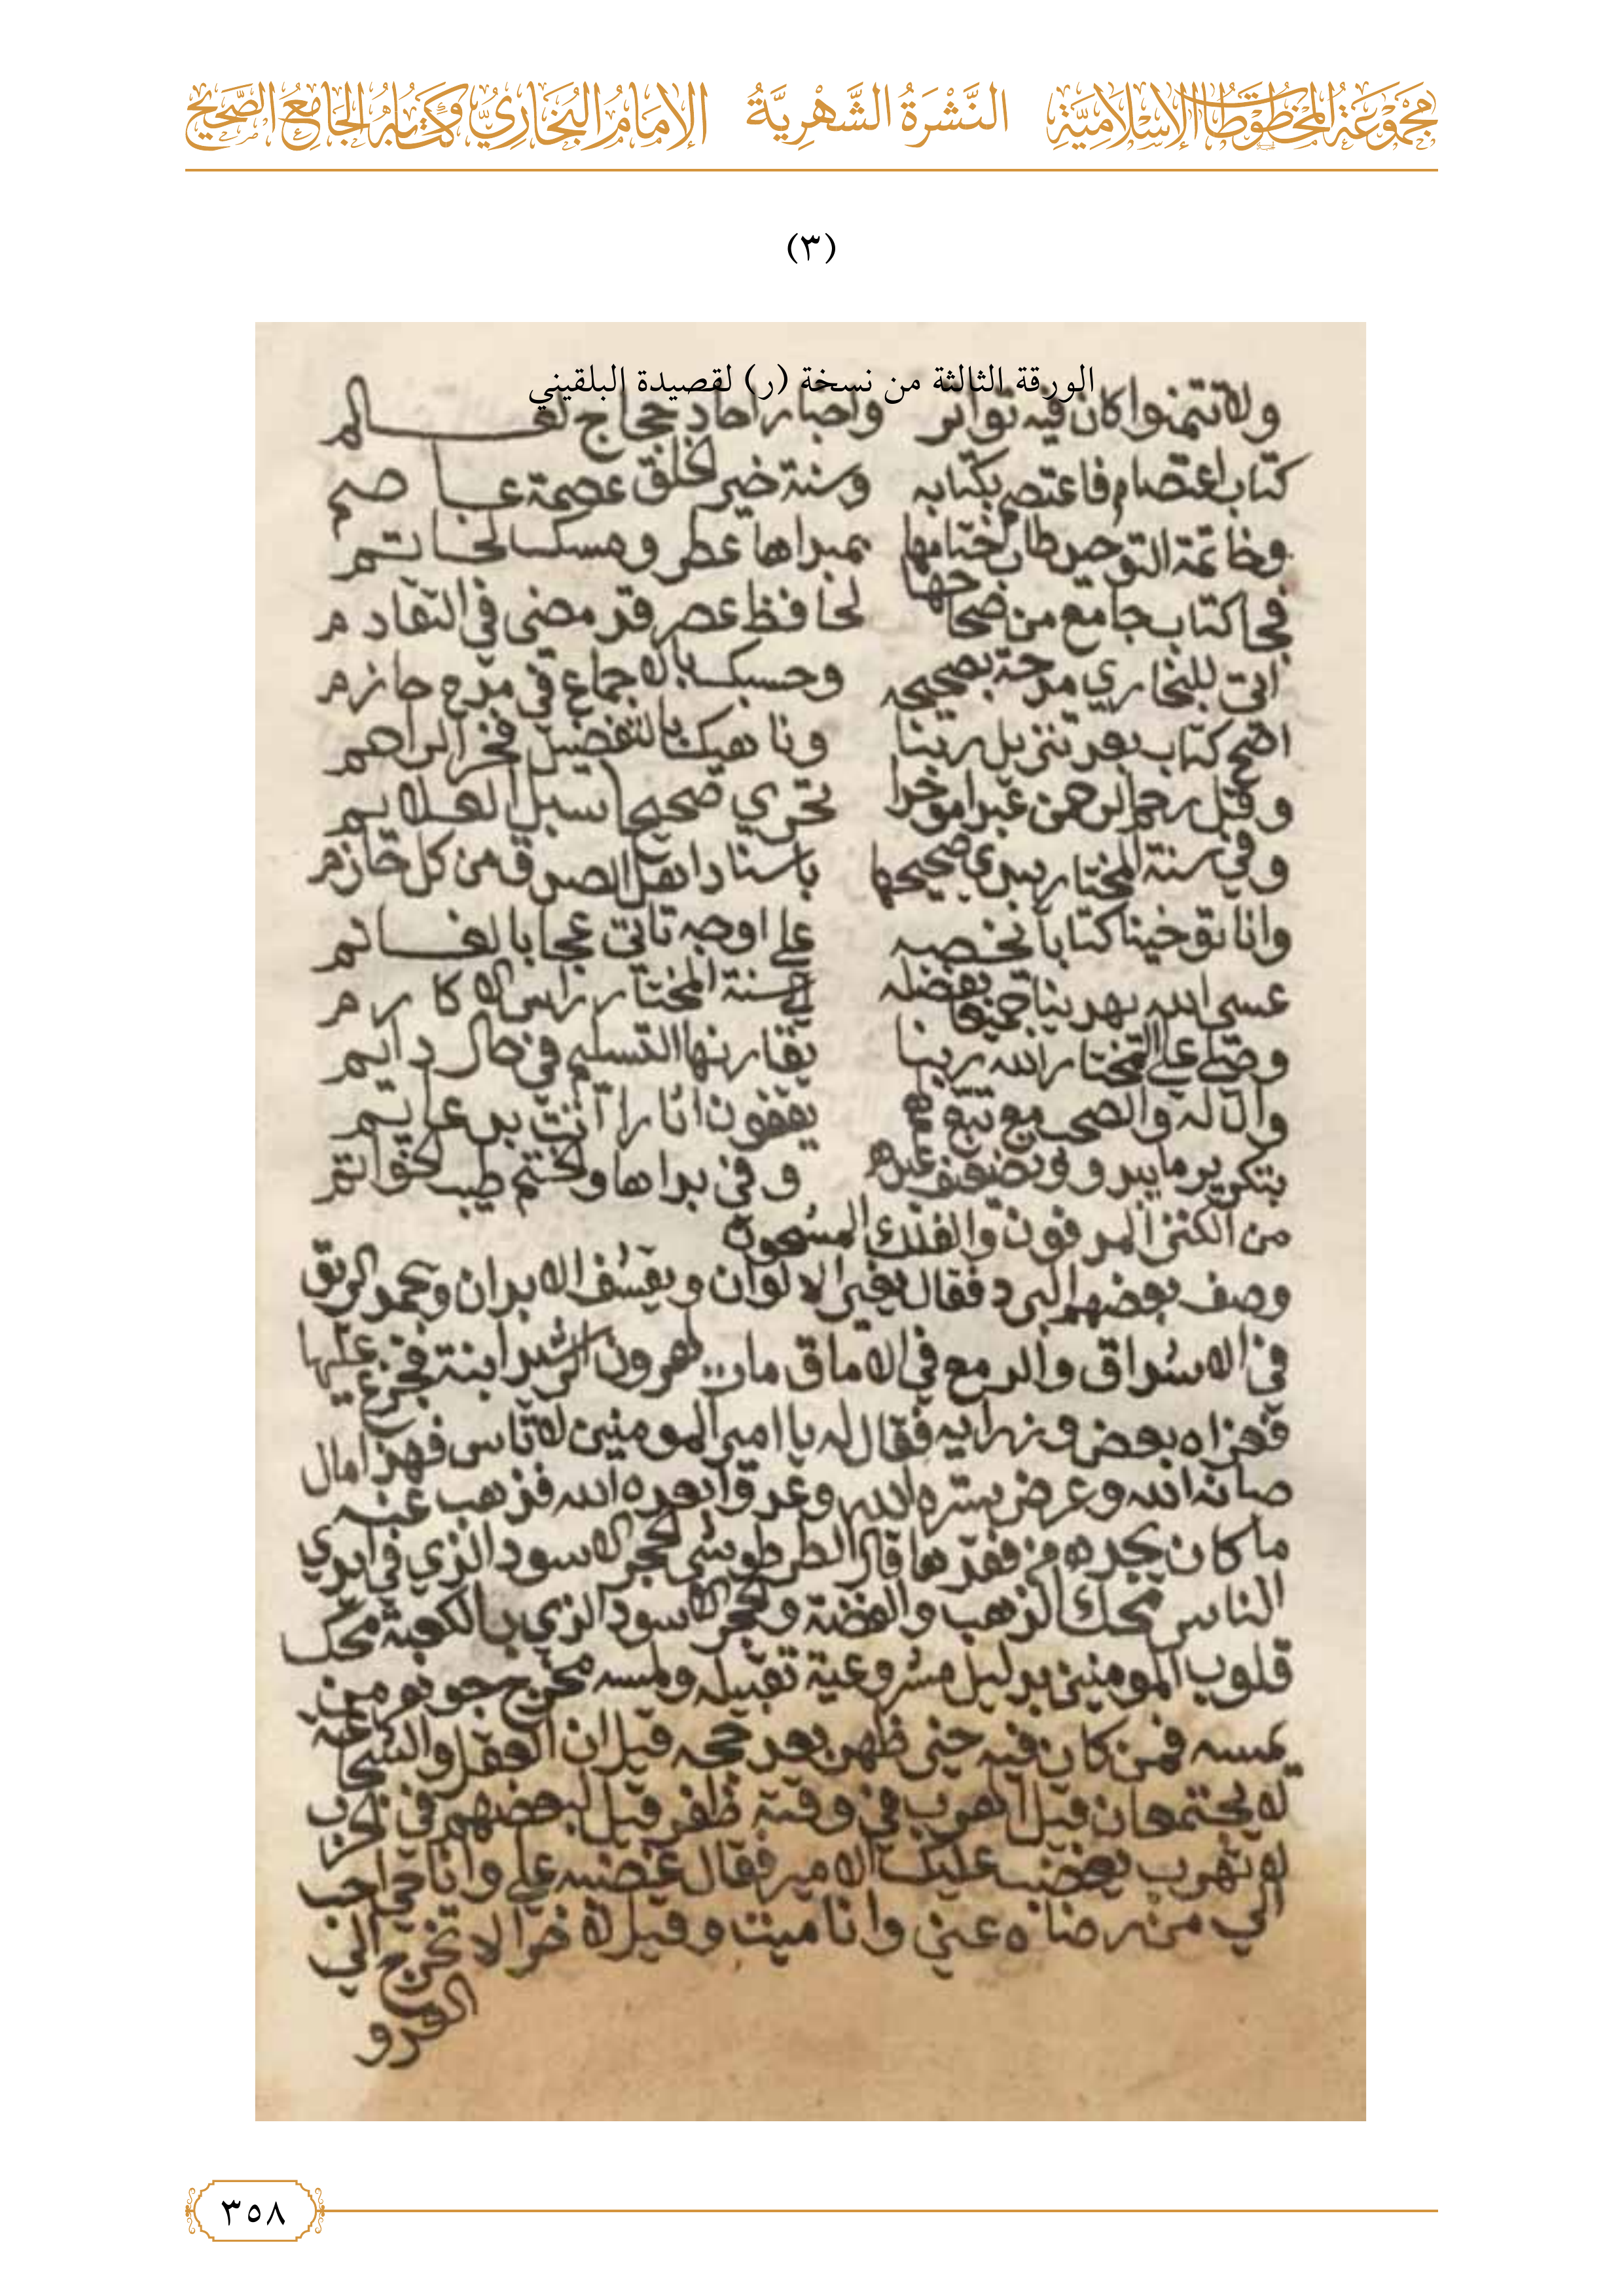 مَجْمُوعَةُ المَخْطُوطَاتِ الإِسْلَامِيَّةِ النَّشْرَةُ الشَّهْرِيَّةُ الإِمَامُ البُخَارِيُّ وَكِتَابُهُ الجَامِعُ الصَّحِيحُ
(٣)
الورقة الثالثة من نسخة (ر) لقصيدة البلقيني
ولا تتمنوا كان فيه تواتر واخبار احاد حجاج لعالم
كتاب اعتصام فاعتصم بكتابه وسنة خير الخلق عصمة عاصم
وخاتمة التوحيد طاب ختامها بمبداها عطر ومسك لخاتم
فجا كتاب جامع من صحاحها لحافظ عصر قد مضى في التقادم
اتى للبخاري مدحة بصحيحه وحسبك بالاجماع في مدح حازم
اصح كتاب بعد تنزيل ربنا وناهيك بالتفضيل فخر لراحم
وقل رحم الرحمن عبدا موخدا تحرى صحيحا سبل العلايم
وفي سنة المختار يبدي صحيحها باسناد اهل الصدق من كل حازم
وانا توخينا كتابا نخصه على اوجه تاتي عجابا لغانم
عسى الله يهدينا جميعا بفضله الى سنة المختار راس الاكارم
وصلى على المختار الله ربنا يقارنها التسليم في حال دايم
وال له والصحب مع تبع لهم يقفون اثارا اتت بدعايم
بتكرير ما يبدو وتضعيف غيره وفي بداها والختم طيب الخواتم
من الكنز المدفون والفلك المشحون
وصف بعضهم البرد فقال يغير الالوان وينشف الابدان ويجمد الريق
في الاسواق والدمع في الاماق مات لهرون الرشيد ابنة فجزع عليها
فعزاه بعض وزرايه فقال له يا امير المومنين لا تاس فهذا مال
صانه الله وعرض ستره الله وعدو ابعده الله فذهب عنه
ما كان يجده من فقدها قال الطرطوشي الحجر الاسود الذي في ايدي
الناس محك الذهب والفضة والحجر الاسود الذي بالكعبة محك
قلوب المومنين بدليل مشروعية تقبيله ولمسه
يمسه فمن كان فيه ظهر بعد حجه قيل ان العقل والشجاعة
لا يجتمعان قيل الهرب في وقته ظفر قيل لبعضهم في الحرب
لا تهرب يغضب عليك الامير فقال غضبه علي وانا حي احب
الي من رضاه عني وانا ميت وقيل لاخر الا تخرج الى
العدو
٣٥٨